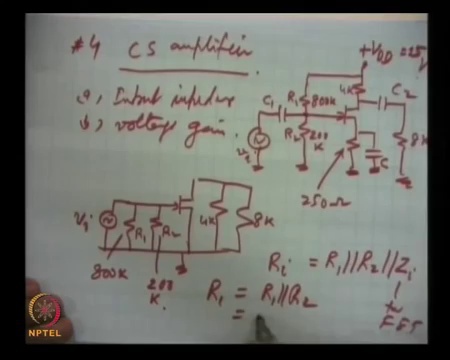 #4 CS amplifier
a, Input impedance
b, voltage gain.
+VDD = 25V
4K
C2
C1
R1 800K
R2 200K
8K
C
Vi
250Ω
Vi
R1
R2
4K
8K
800K
200K.
Ri = R1//R2//Zi
FET
R1 = R1//R2
=
NPTEL